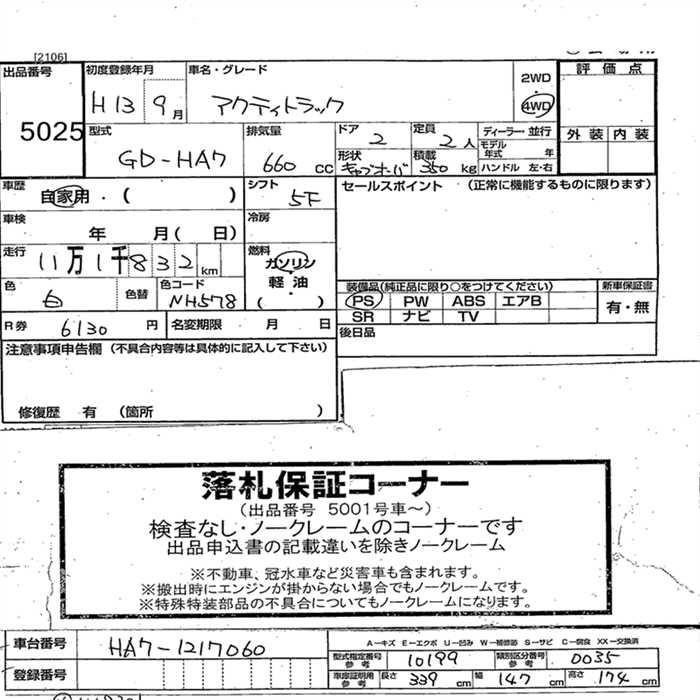 [2106]
出品番号 5025
初度登録年月 H13 9月
車名・グレード アクティトラック
2WD 4WD
評価点
外装 内装
型式 GD-HA7
排気量 660 cc
ドア 2
定員 2人
ディーラー・並行
モデル年式 年
形状 キャブオーバ
積載 350 kg
ハンドル 左・右
車歴 自家用・( )
シフト 5F
セールスポイント (正常に機能するものに限ります)
車検 年 月( 日)
冷房
走行 11万1千832km
燃料 ガソリン 軽・油 ( )
色 白
色替
色コード NH578
装備品(純正品に限り○をつけてください)
新車保証書
PS PW ABS エアB
有・無
SR ナビ TV
R券 6130 円
名変期限 月 日
後日品
注意事項申告欄 (不具合内容等は具体的に記入して下さい)
修復歴 有 (箇所 )
落札保証コーナー
(出品番号 5001号車〜)
検査なし・ノークレームのコーナーです
出品申込書の記載違いを除きノークレーム
※不動車、冠水車など災害車も含まれます。
※搬出時にエンジンが掛からない場合でもノークレームです。
※特殊特装部品の不具合についてもノークレームになります。
車台番号 HA7-1217060
A-キズ E-エクボ U-凹み W-補修跡 S-サビ C-腐食 XX-交換済
型式指定番号 参考 10199
類別区分番号 参考 0035
登録番号
車庫証明用 参考 長さ 339 cm 幅 147 cm 高さ 174 cm